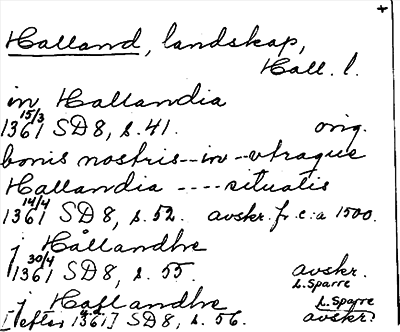 +
Halland, landskap,
Hall. l.
in Hallandia
15/3
1361 SD 8, s. 41. orig.
bonis nostris--in--vtraque
Hallandia ----situatis
14/4
1361 SD 8, s. 52. avskr. fr. c:a 1500.
j Hållandhe
30/4
1361 SD 8, s. 55. avskr.
L. Sparre
j Hallandhe L. Sparre
[efter 1361] SD 8, s. 56. avskr.